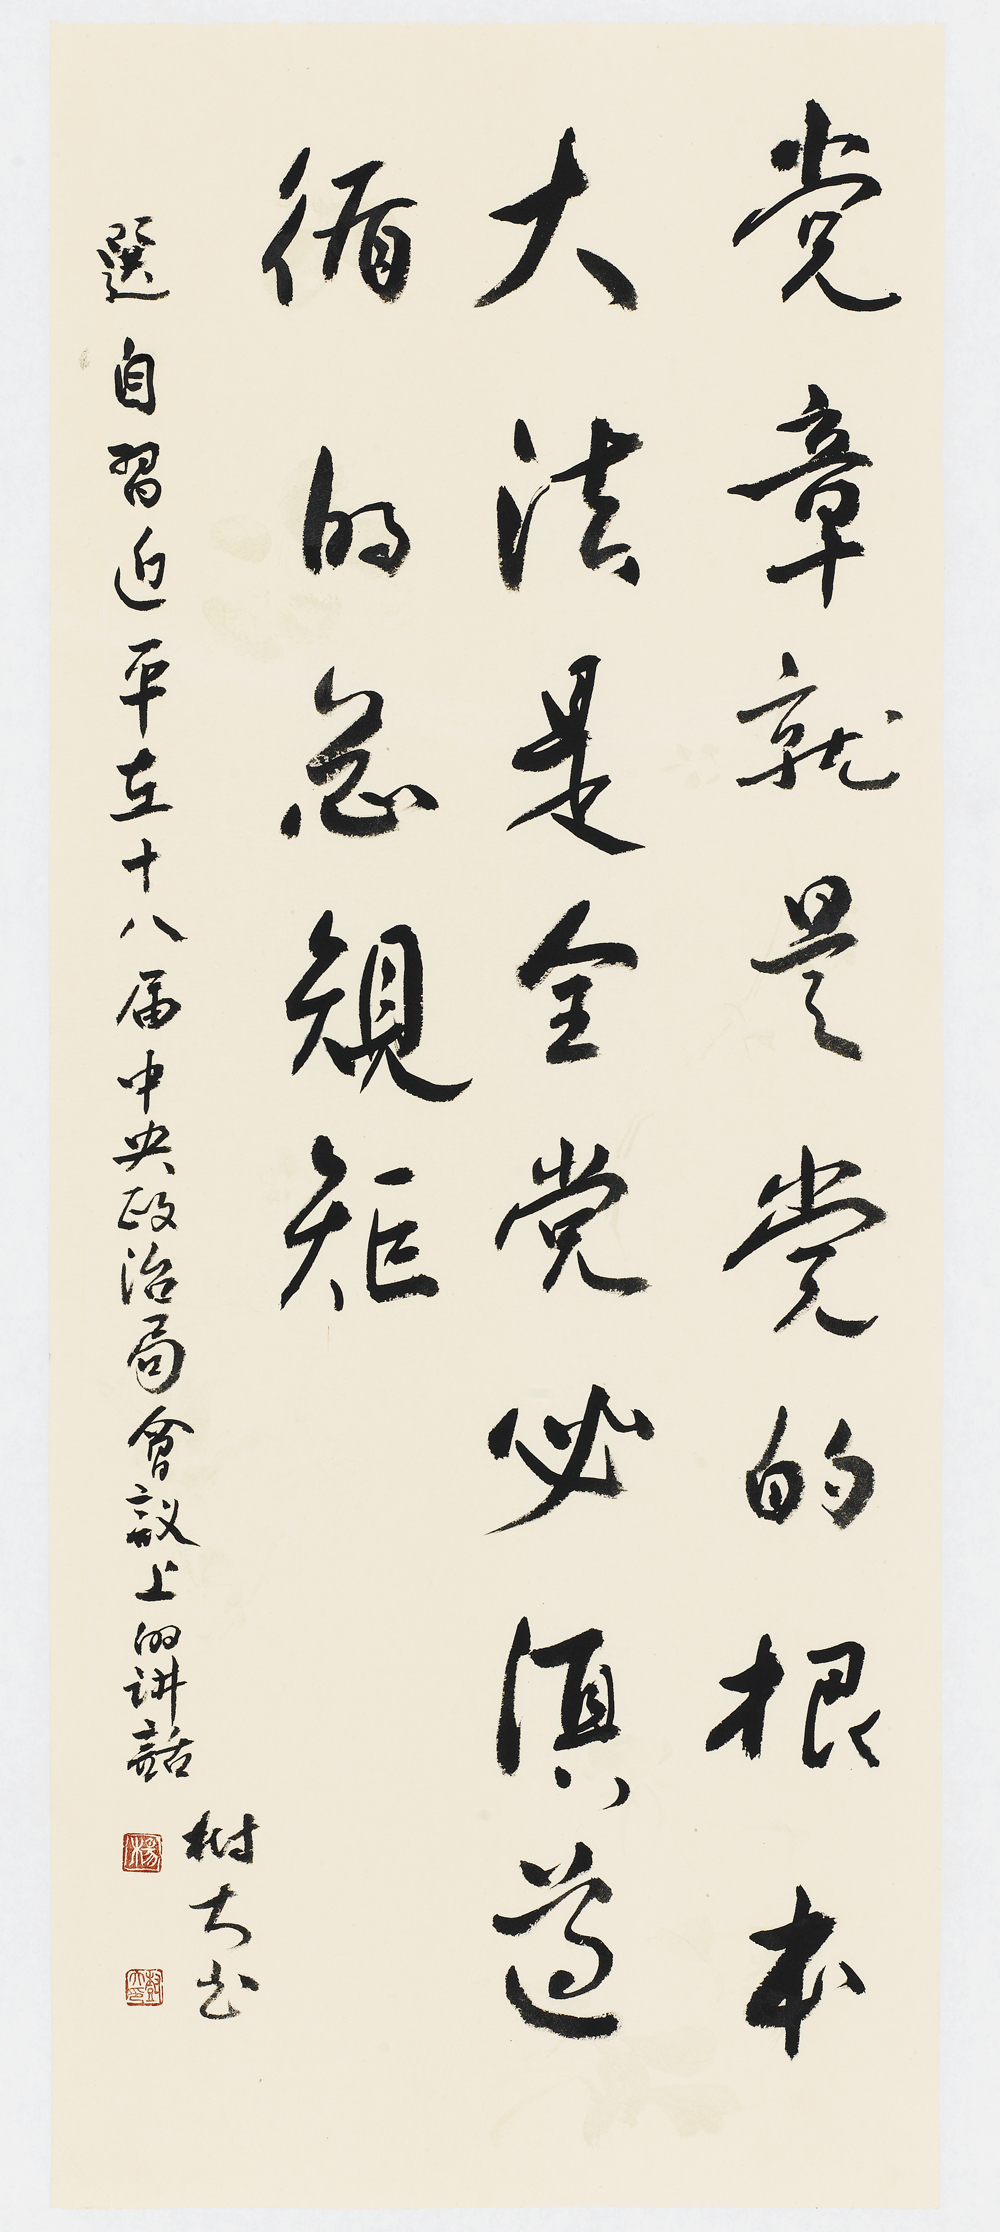 党章就是党的根本
大法是全党必須遵
循的总規矩
選自習近平在十八届中央政治局會議上的讲話
树大书
楊
樹大印